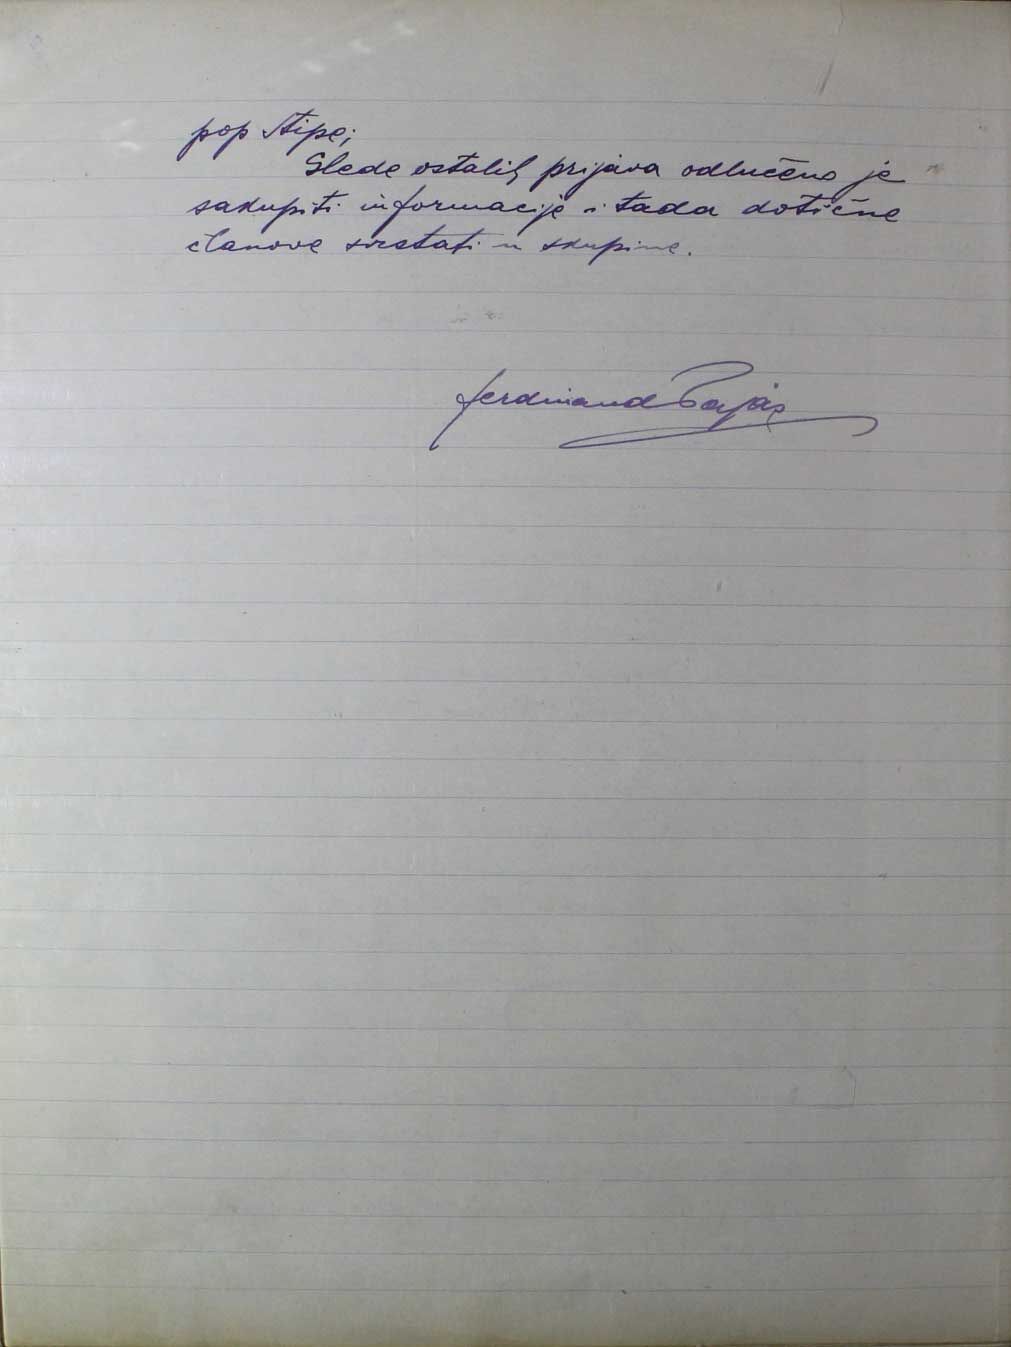 pop Stipe;
Glede ostalih prijava odlučeno je
sakupiti informacije i tada dotične
članove svrstati u skupine.
Ferdinand Pajas